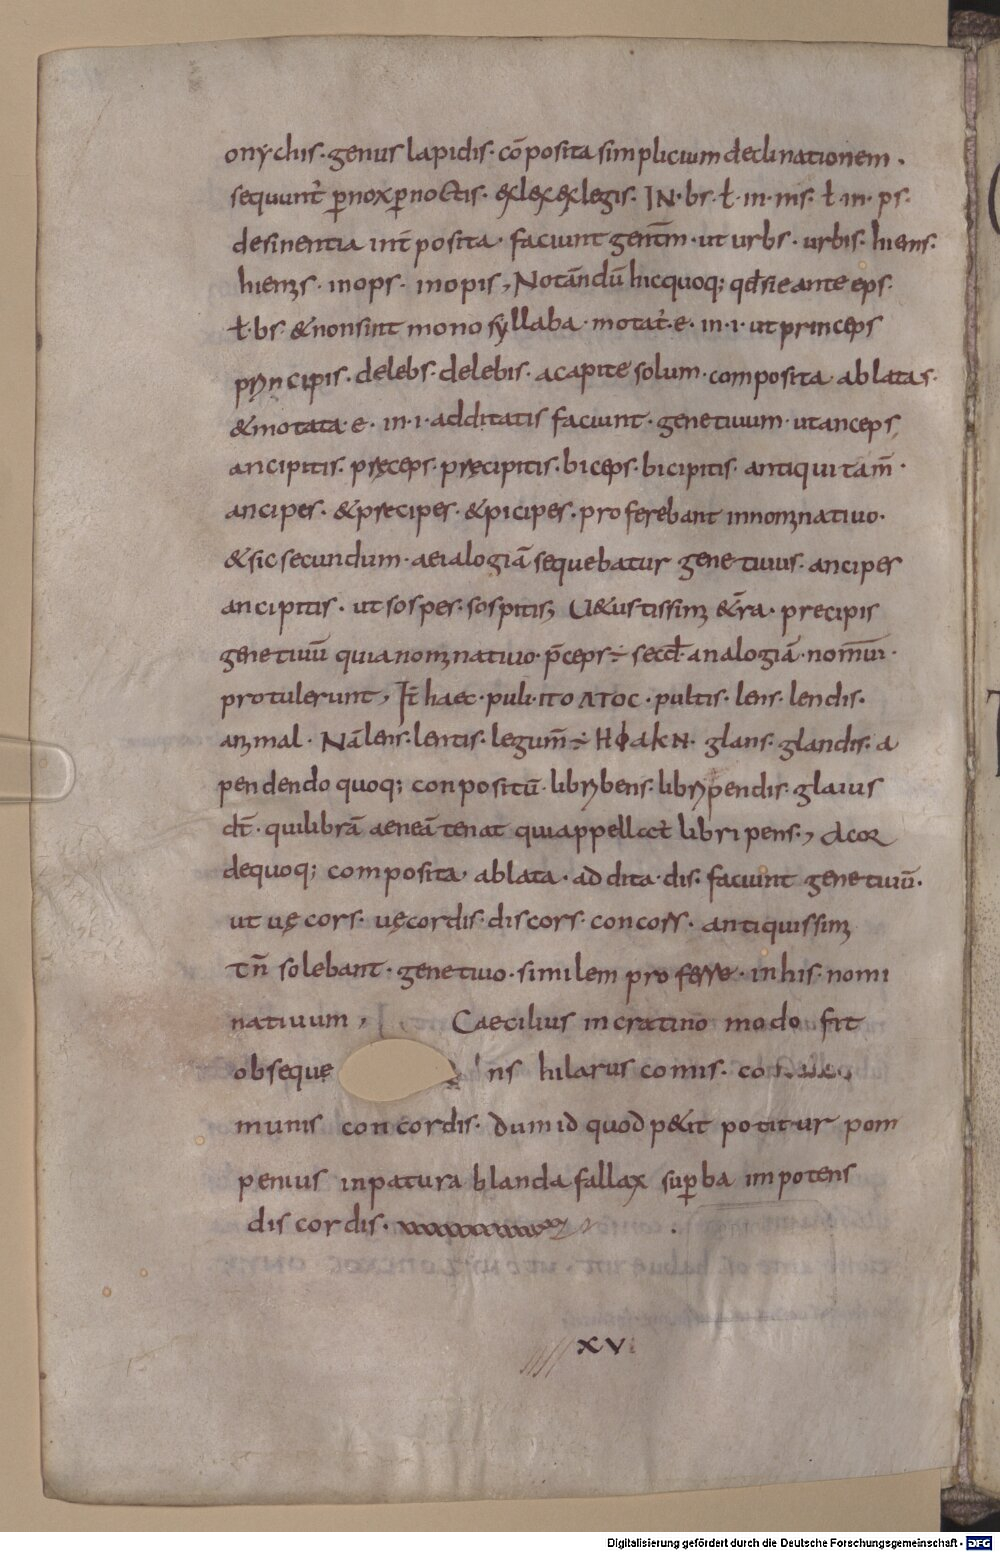 onychis · genus lapidis · cō posita simplicium declinationem ·
sequunt̃ p̱nox p̱noctis · exlex exlegis · IN · bs · ł · in · ms · ł · in · ps ·
desinentia int̃ posita · faciunt geñtm · ut urbs · urbis · hiems ·
hiemis · inops · inopis, Notandū hic quoq; qđ si e ante eps ·
ł · bs · & non sint mono syllaba · motat̃ · e · in · i · ut princeps
principis · delebs · delebis · a capite solum · composita · ablata s ·
& motata · e · in · i · addita tis faciunt · genetiuum · ut anceps,
ancipitis · pręceps · pręcipitis · biceps · bicipitis · antiqui tam̄ ·
ancipes · & precipes · & picipes · pro ferebant in nominatiuo ·
& sic secundum · aeialogiā sequebatur genetiuus · ancipes
ancipitis · ut sospes · sospitis, U&ustissimi &r̄a · precipis
genetiuū quia nominatiuo p̄ceps ÷ secđ · analogiā · nom̄ui ·
protulerunt, It̃ haec · puli · ΠΟ ΛΤΟC · pultis · lens · lendis ·
animal · Nā lens · lentis · legum̄ ÷ ΗΦΑΚΝ · glans · glandis · a
pendendo quoq; conpositū · libribens · libripendis · glaius
dt̄ · qui librā aeneā tenat qui appellat̃ libri pens ·, A cor
de quoq; composita · ablata · ad dita · dis · faciunt genetiuū ·
ut vę cors · vęcordis · discors · concors · antiquissimi
tn̄ solebant · genetiuo · similem pro ferre · in his · nomi
natiuum, Caecilius in cratino modo fit
obseque ns hilarus comis ·
munis concordis · dum id quod p&it potitur pom
penius in patura blanda fallax sup̱ba impotens
dis cordis ·
XV
Digitalisierung gefördert durch die Deutsche Forschungsgemeinschaft - DFG